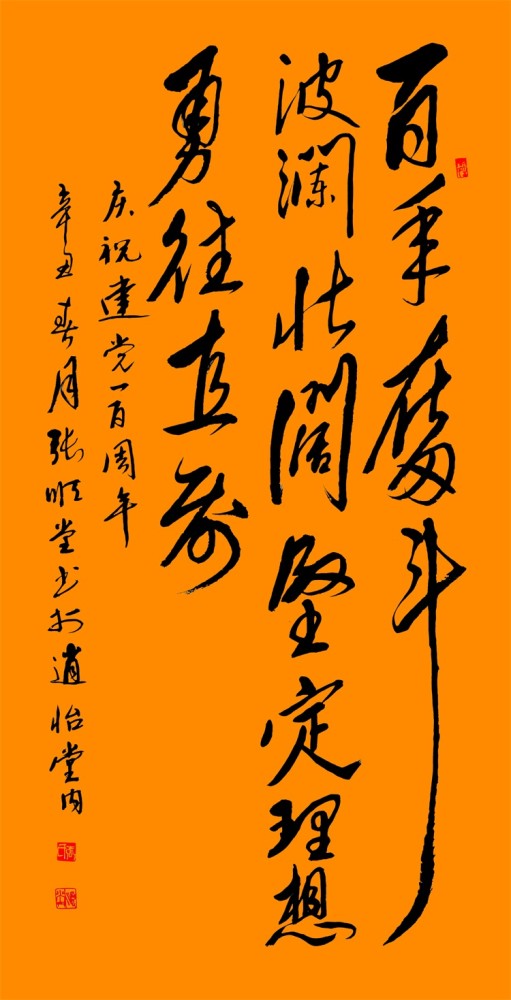 百年奋斗
波澜壮阔坚定理想
勇往直前
庆祝建党一百周年
辛丑春月张顺堂书于逍怡堂内